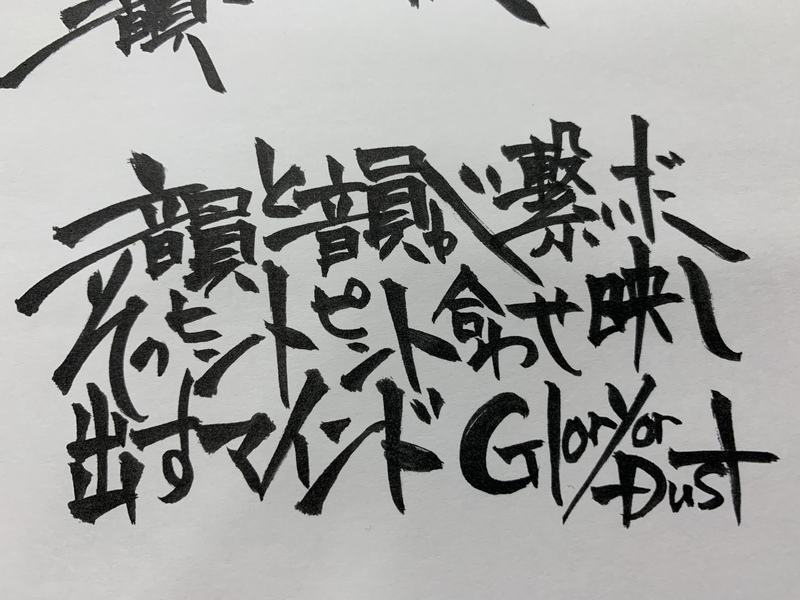 韻と韻が繋いだ
そのヒントピント合わせ映し
出すマインド Glory or Dust